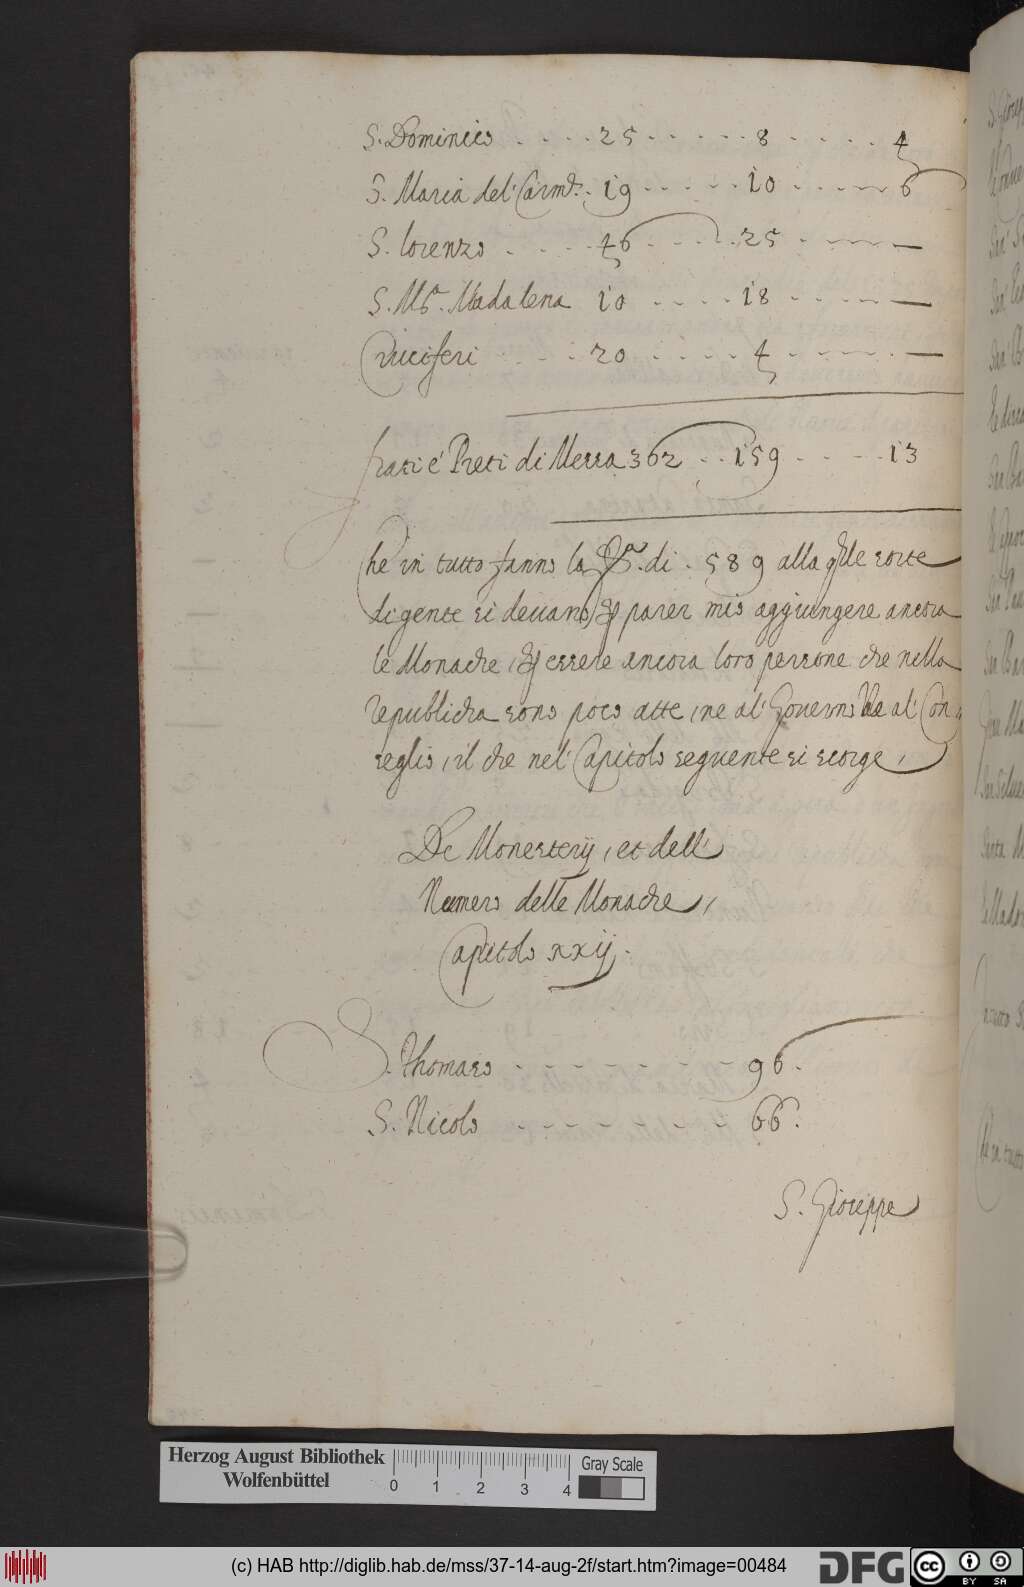 S. Dominico . . . . 25 . . . . . . 8 . . . . . 4
S. Maria del' Carm.e . 19 . . . . . 10 . . . . . 6
S. lorenzo . . . . . 46 . . . . . 25 . . . . —
S. M.a Madalena 10 . . . . . 18 . . . . —
Cruciferi . . . . . 20 . . . . . 4 . . . . . —
frati e' Preti di Messa 362 . . 159 . . . . . 13
Che in tutto fanno la . di . 589 alla qle sorte
di gente si deuano, p parer mio aggiungere ancora
le Monache, p essere ancora loro persone che nella
republicha sono poco atte, ne al' Gouerno ne al' Con
seglio, il che nel' Capitolo seguente si scorge,
De Monesterij, et dell'
Numero delle Monache,
Capitolo xxij.
S. Thomaso . . . . . . . . 96.
S. Nicolo . . . . . . . . 66.
S. Gioseppe
Herzog August Bibliothek
Wolfenbüttel
0 1 2 3 4
Gray Scale
(c) HAB http://diglib.hab.de/mss/37-14-aug-2f/start.htm?image=00484
DFG
cc BY SA